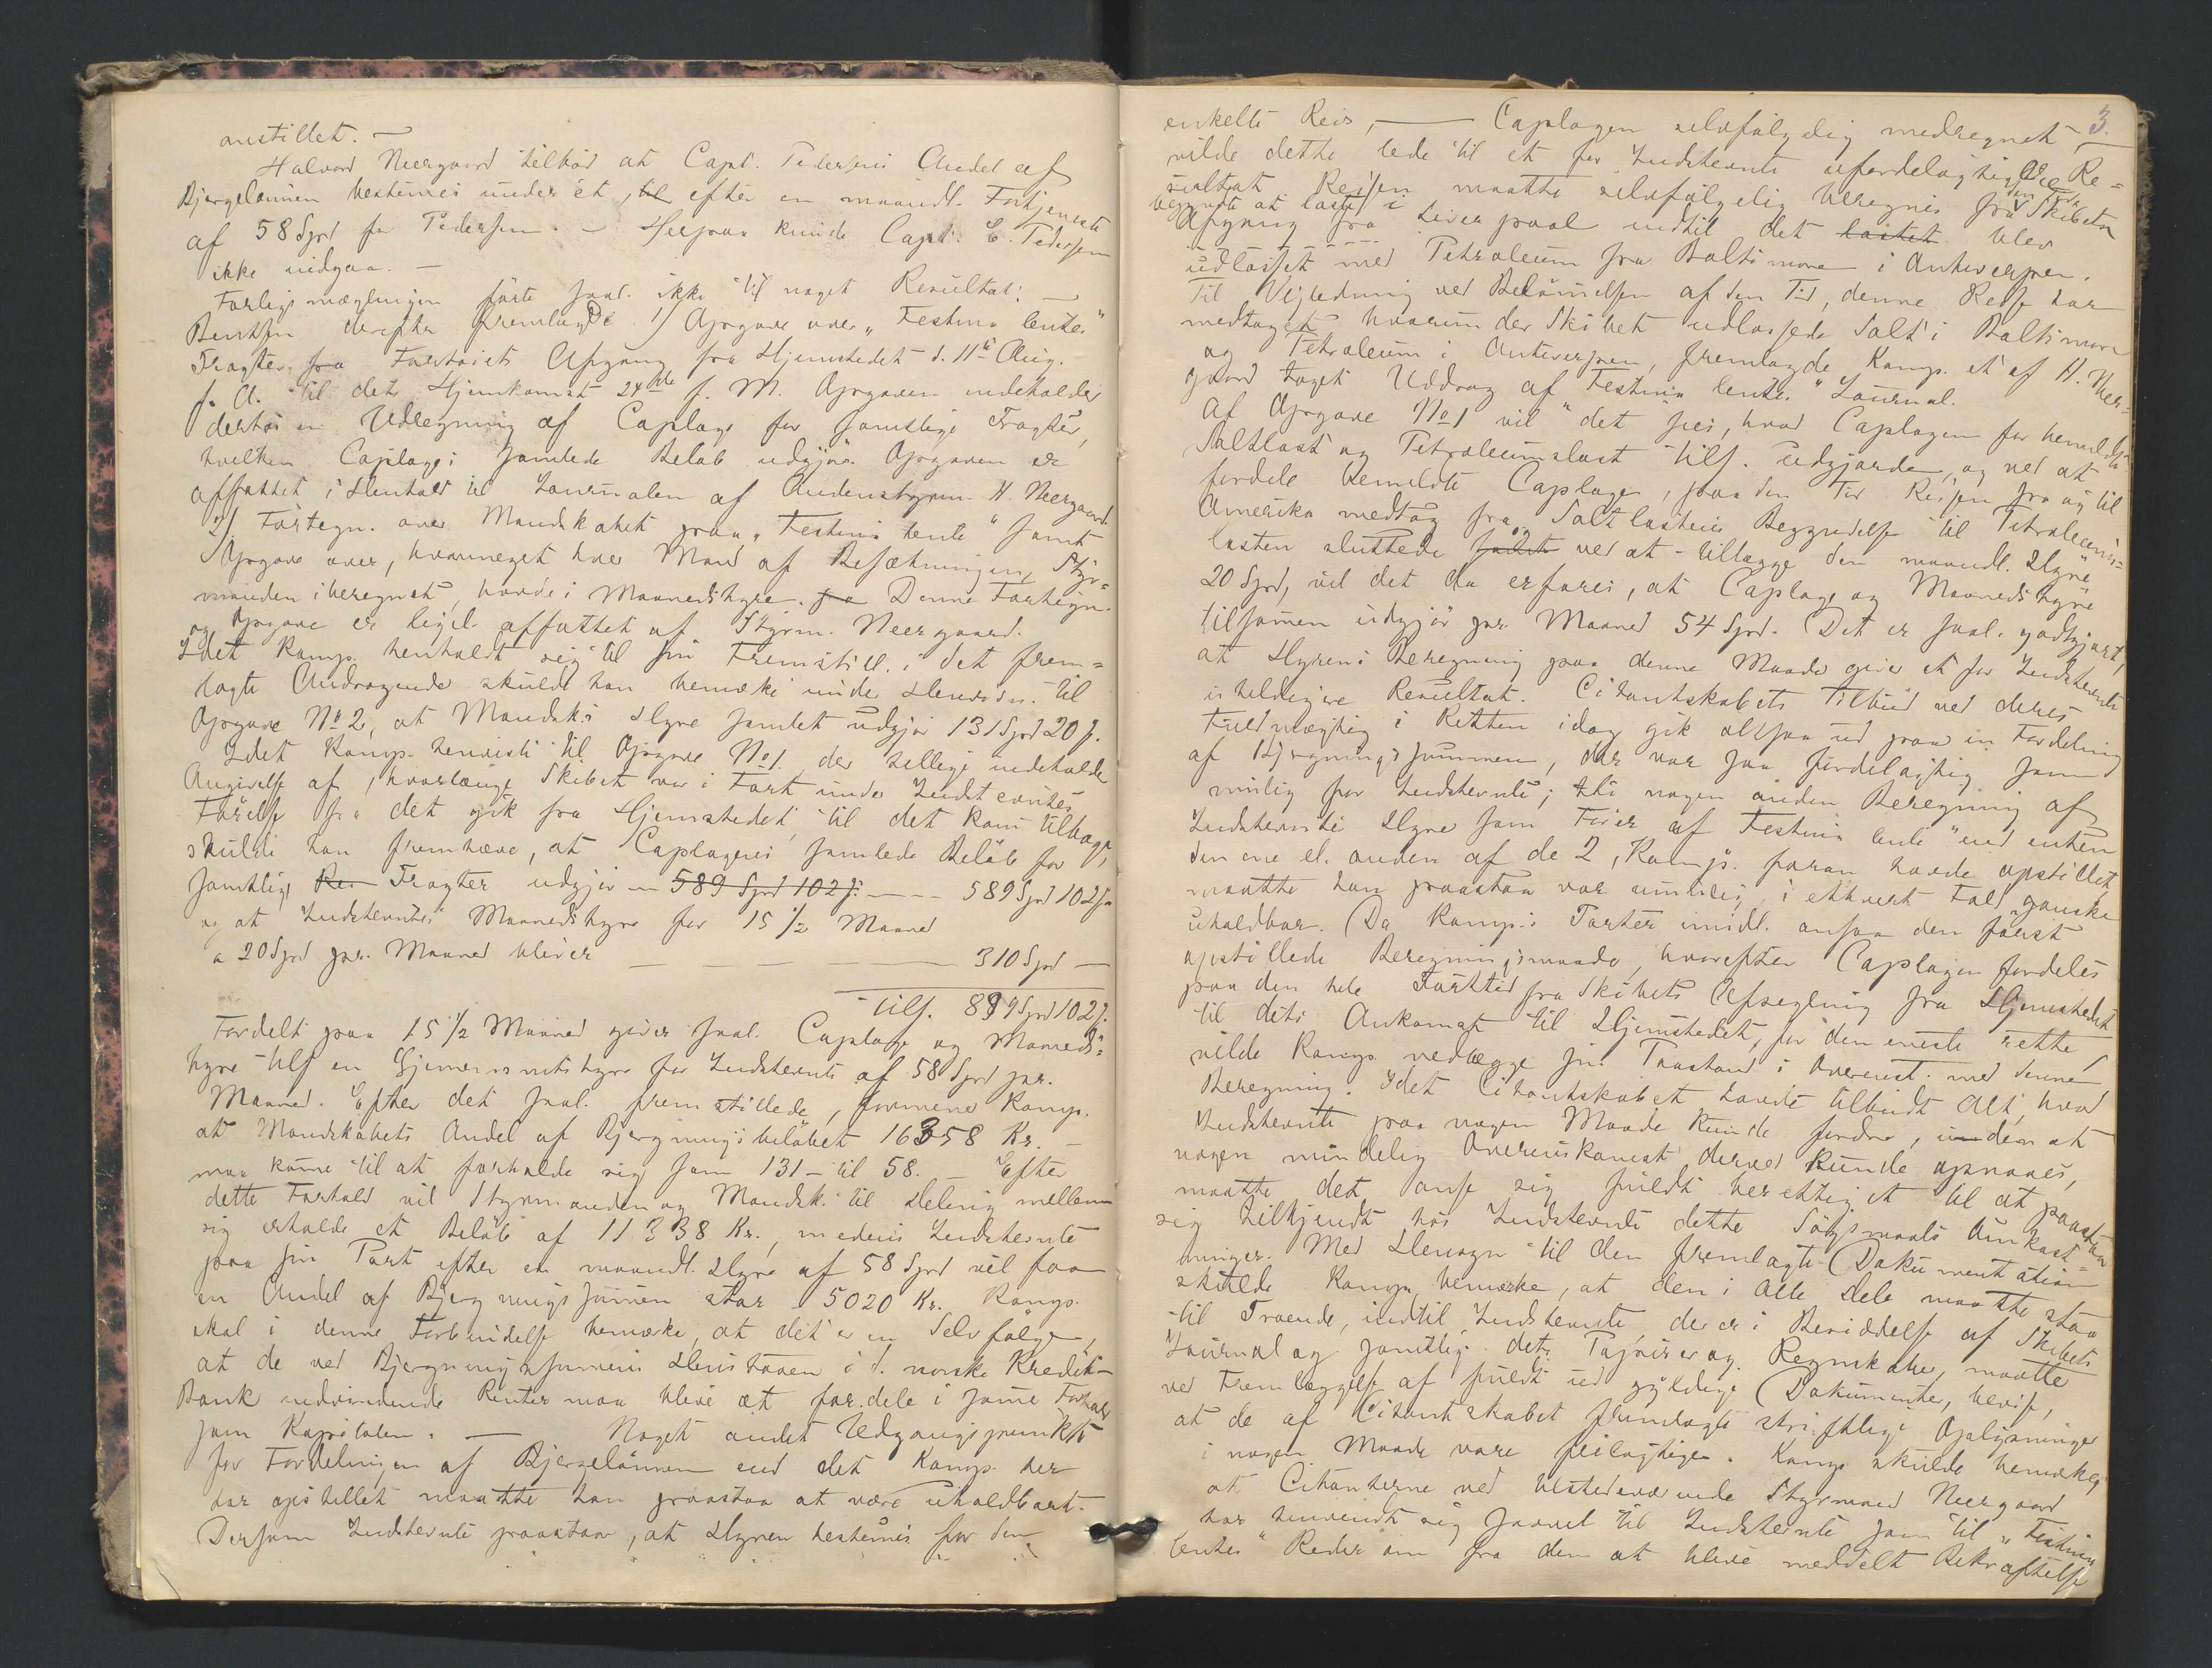 anstillet. —
Halvard Neergaard tilbød at Capt. Pedersens Andel af
Bjergelønnen bestemmes under ét, til efter en maanedl. Fortjeneste
af 58 Spd for Pedersen. — Herpaa kunde Capt. C. Pedersen
ikke indgaa. —
Forligsmæglingen førte saal. ikke til noget Resultat. —
Bentsen derefter fremlagde 1/ Opgave over „Festina lente"
Fragter fra Fartøiets Afgang fra Hjemstedet d. 11te Aug.
f. A. til dets Hjemkomst 24de f. M. Opgaven indeholder
derhos en Udregning af Caplage for samtlige Fragter,
hvilken Caplages samlede Beløb udgjør. Opgaven er
affattet i Henhold til Journalen af Andenstyrm. H. Neergaard.
2/ Fortegn. over Mandskabet paa „Festina lente" samt
Opgave over, hvormeget hver Mand af Besætningen, Styr-
manden iberegnet, havde i Maanedshyre. fra Denne Fortegn.
og Opgave er ligel. affattet af Styrm. Neergaard.
Idet Komp. henholdt sig til sin Fremstill. i det frem-
lagte Andragende skulde han bemærke under Henvisn. til
Opgave No 2, at Mandsk.s Hyre samlet udgjør 131 Spd 20 s.
Idet Komp. henviste til Opgave No 1. der tillige indeholder
Angivelse af, hvorlænge Skibet var i Fart under Indstevntes
Førelse fra det gik fra Hjemstedet til det kom tilbage,
skulde han fremhæve, at Caplagens samlede Beløb for
samtlige Rei Fragter udgjør — 589 Spd 102 s. — — — 589 Spd 102 s.
og at Indstevntes Maanedshyre for 15 1/2 Maaned
a 20 Spd pr. Maaned bliver — — — — 310 Spd —
tils. 899 Spd 102 s.
Fordelt paa 15 1/2 Maaned giver saal. Caplage og Maaneds-
hyre tils en Gjennemsnitshyre for Indstevnte af 58 Spd pr.
Maaned. Efter det saal. fremstillede, formener Komp.
at Mandskabets Andel af Bjergningsbeløbet 16358 Kr. —
maa komme til at forholde sig som 131 — til 58. Efter
dette Forhold vil Styrmanden og Mandsk. til Deling mellem
sig erholde et Beløb af 11338 Kr., medens Indstevnte
paa sin Part efter en maanedl. Hyre af 58 Spd vil faa
en Andel af Bjergningssummen stor 5020 Kr. Komp.
skal i denne Forbindelse bemærke, at det er en Selvfølge,
at de ved Bjergningssummens Henstaaen i d. norske Kredit-
Bank indvindende Renter maa blive at fordele i samme Forhold
som Kapitalen. — Noget andet Udgangspunkt
for Fordelingen af Bjergelønnen end det Komp. her
har opstillet maatte han paastaa at være uholdbart.
Dersom Indstevnte paastaar, at Hyren bestemmes for den
3.
enkelte Reis, — Caplagen selvfølgelig medregnet, —
vilde dette lede til et for Indstevnte ufordelagtigere Re-
sultat. Reisen maatte selvfølgelig beregnes fra den Tid Skibet
begyndte at laste i
Afgang fra Liverpool indtil det lastet blev
udlosset med Petroleum fra Baltimore i Antwerpen.
Til Vejledning ved Bedømmelsen af den Tid, denne Reise har
medtaget hvorunder Skibet udlossede Salt i Baltimore
og Petroleum i Antwerpen, fremlagde Komp. et af H. Neer-
gaard taget Uddrag af „Festina lentes" Journal.
Af Opgave No 1 vil det sees, hvad Caplagen for bemeldte
Saltlast og Petroleumslast tils. udgjorde, og ved at
fordele bemeldte Caplage, paa den Tid Reisen fra og til
Amerika medtog fra Saltlastens Begyndelse til Petroleums-
lasten sluttede og ved at tillægge den maanedl. Hyre
20 Spd, vil det da erfares, at Caplage og Maanedshyre
tilsammen udgjør pr. Maaned 54 Spd. Det er saal. godtgjort,
at Hyrens Beregning paa denne Maade giver et for Indstevnte
uheldigere Resultat. Citantskabets Tilbud ved deres
Fuldmægtig i Retten idag gik altsaa ud paa en Fordeling
af Bjergningssummen, der var saa fordelagtig som
mulig for Indstevnte; thi nogen anden Beregning af
Indstevntes Hyre som Fører af „Festina lente" end enten
den ene el. anden af de 2, Komp. foran havde opstillet,
maatte han paastaa var umulig, i ethvert Fald ganske
uholdbar. Da Komp.s Parter imidl. ansaa den først
opstillede Beregningsmaade, hvorefter Caplagen fordeles
paa den hele Farttid fra Skibets Afsegling fra Hjemstedet
til dets Ankomst til Hjemstedet, for den eneste rette,
vilde Komp. nedlægge sin Paastand i Overenst. med denne
Beregning. Idet Citantskabet havde tilbudt Alt, hvad
Indstevnte paa nogen Maade kunde fordre, uden at
nogen mindelig Overenskomst derved kunde opnaaes,
maatte det anse sig fuldt berettiget til at paastaa
sig tilkjendt hos Indstevnte dette Søgsmaals Omkost-
ninger. Med Hensyn til den fremlagte Dokumentation
skulde Komp. bemærke, at den i alle Dele maatte staa
til Troende, indtil Indstevnte, der er i Besiddelse af Skibets
Journal og samtlige dets Papirer og Regnskaber, maatte
ved Fremlæggelse af fuldt ud gyldige Dokumenter, bevise,
at de af Citantskabet fremlagte skriftlige Oplysninger
i nogen Maade vare feilagtige. Komp. skulde bemærke,
at Citanterne ved tilstedeværende Styrmand Neergaard
har henvendt sig saavel til Indstevnte som til „Festina
lentes" Reder om fra dem at blive meddelt Bekræftelse